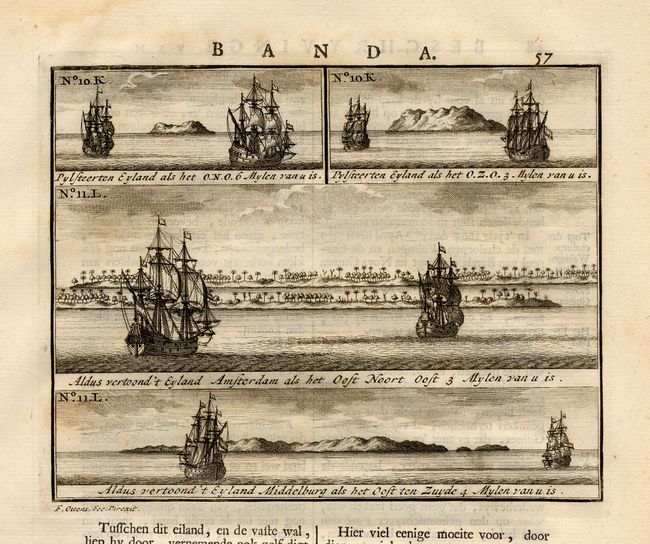 BANDA.
57
Nº10.K.
Nº10.K.
Pylsteerten Eyland als het O.N.O. 6 Mylen van u is.
Pylsteerten Eyland als het O.Z.O. 3. Mylen van u is.
Nº11.L.
Aldus vertoond't Eyland Amsterdam als het Oost Noort Oost 3 Mylen van u is.
Nº11.L.
Aldus vertoond't Eyland Middelburg als het Oost ten Zuyde 4 Mylen van u is.
F. Ottens. Fec. Direxit.
Tuſſchen dit eiland, en de vaſte wal,
Hier viel eenige moeite voor, door